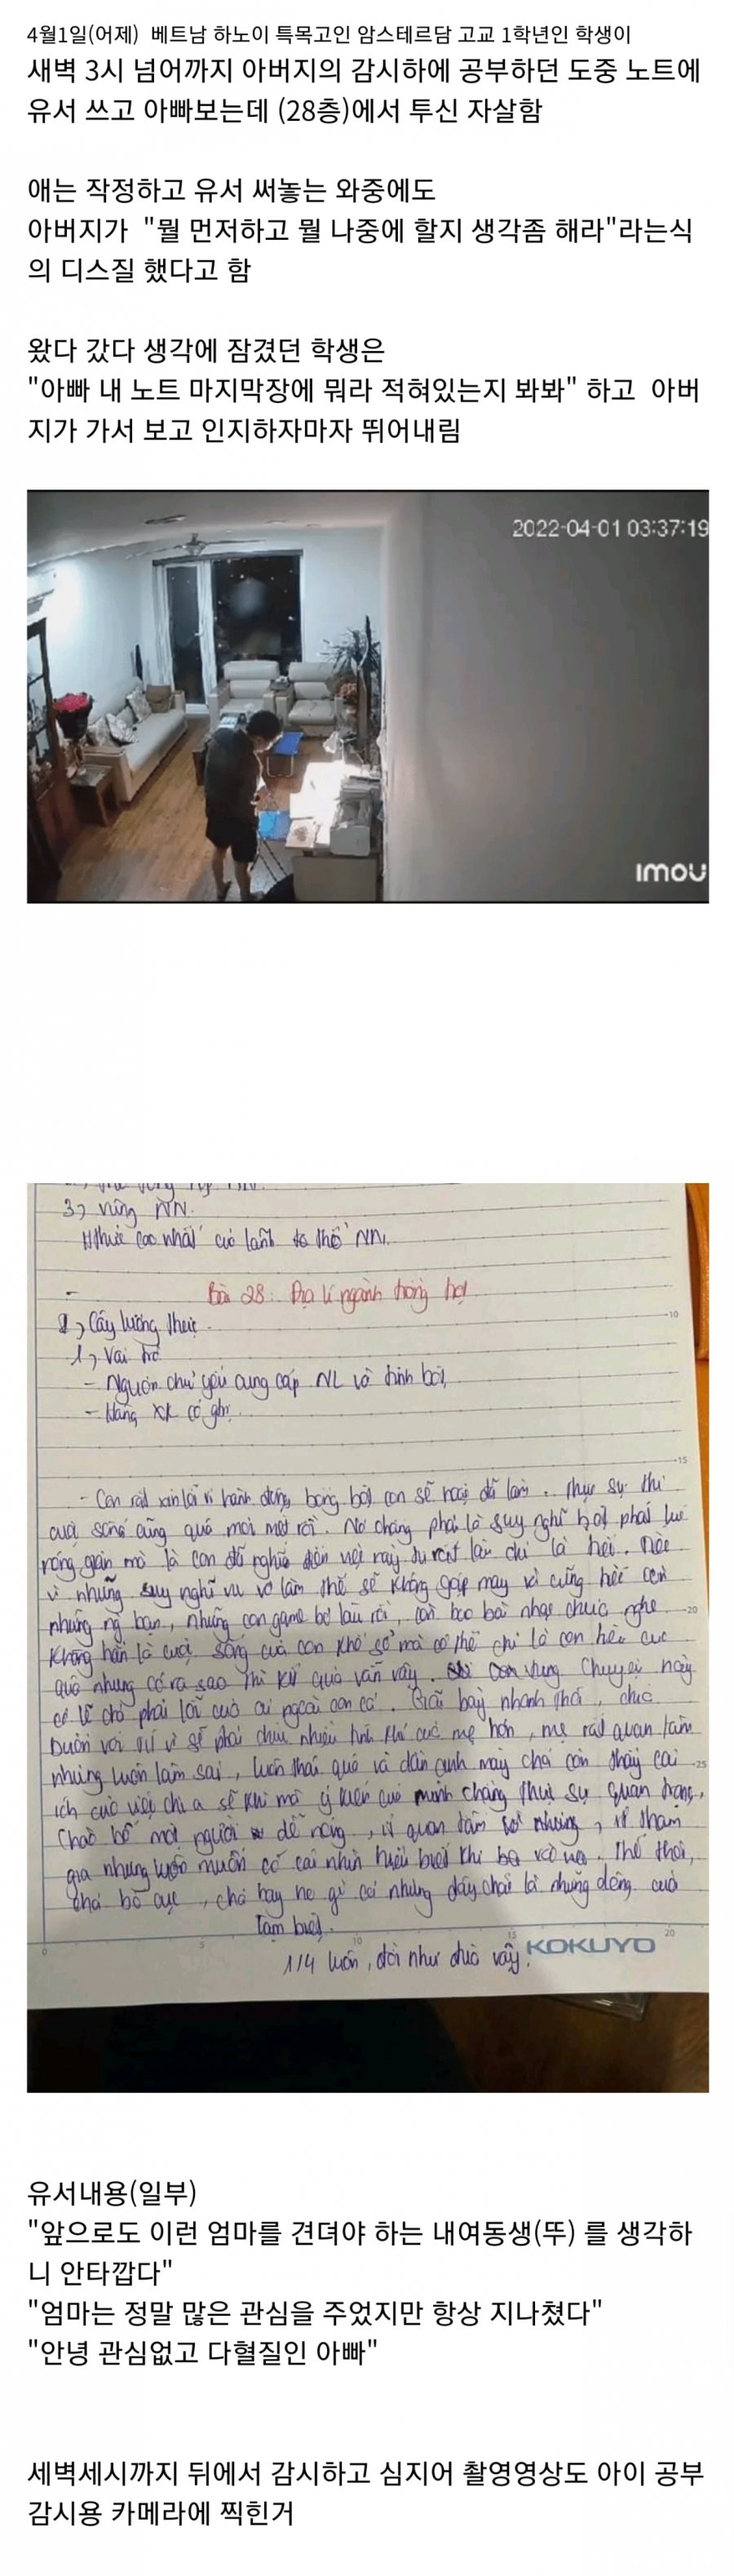 4월1일(어제) 베트남 하노이 특목고인 암스테르담 고교 1학년인 학생이
새벽 3시 넘어까지 아버지의 감시하에 공부하던 도중 노트에
유서 쓰고 아빠보는데 (28층)에서 투신 자살함
애는 작정하고 유서 써놓는 와중에도
아버지가 "뭘 먼저하고 뭘 나중에 할지 생각좀 해라"라는식
의 디스질 했다고 함
왔다 갔다 생각에 잠겼던 학생은
"아빠 내 노트 마지막장에 뭐라 적혀있는지 봐봐" 하고 아버
지가 가서 보고 인지하자마자 뛰어내림
2022-04-01 03:37:19
imou
3, vùng NN.
cao nhất của lãnh thổ NN.
Bài 28: Địa lí ngành trồng trọt
Cây lương thực
1, Vai trò
- Nguồn chủ yếu cung cấp NL và tinh bột
- Hàng XK có
- Con rất xin lỗi vì hành động bồng bột con sẽ hoặc đã làm. Thực sự thì
cuộc sống cũng quá mệt mỏi rồi. Nó chẳng phải là suy nghĩ bột phát
mà là con đã nghĩ đến việc này rất lâu chỉ là
vì những suy nghĩ vu vơ lắm thế sẽ không gặp may và cũng hên còn
những ng bạn, những con game bỏ lâu rồi, còn bao bài nhạc chưa nghe
Không hẳn là cuộc sống của con khổ sở mà có thể chỉ là con tiêu cực
quá nhưng có ra sao thì kết quả vẫn vậy. Chuyện này
có lẽ chả phải lỗi của ai ngoài con cả. Giãi bày nhanh thôi, chắc
buồn với vì sẽ phải chịu nhiều tính khí của mẹ hơn, mẹ rất quan tâm
nhưng luôn làm sai, luôn thái quá và dần con chả còn thấy cái
ích của việc chia sẻ khi mà ý kiến của mình chẳng thực sự quan trọng.
Chào bố một người dễ nóng, ít quan tâm nhưng, ít tham
gia nhưng luôn muốn có cái nhìn hiểu biết khi Thế thôi,
chả bố cục, chả hay ho gì cả nhưng đấy chắc là những dòng cuối
tạm biệt.
1/4 luôn, đời như đùa vậy.
KOKUYO
유서내용(일부)
"앞으로도 이런 엄마를 견뎌야 하는 내여동생(뚜) 를 생각하
니 안타깝다"
"엄마는 정말 많은 관심을 주었지만 항상 지나쳤다"
"안녕 관심없고 다혈질인 아빠"
세벽세시까지 뒤에서 감시하고 심지어 촬영영상도 아이 공부
감시용 카메라에 찍힌거